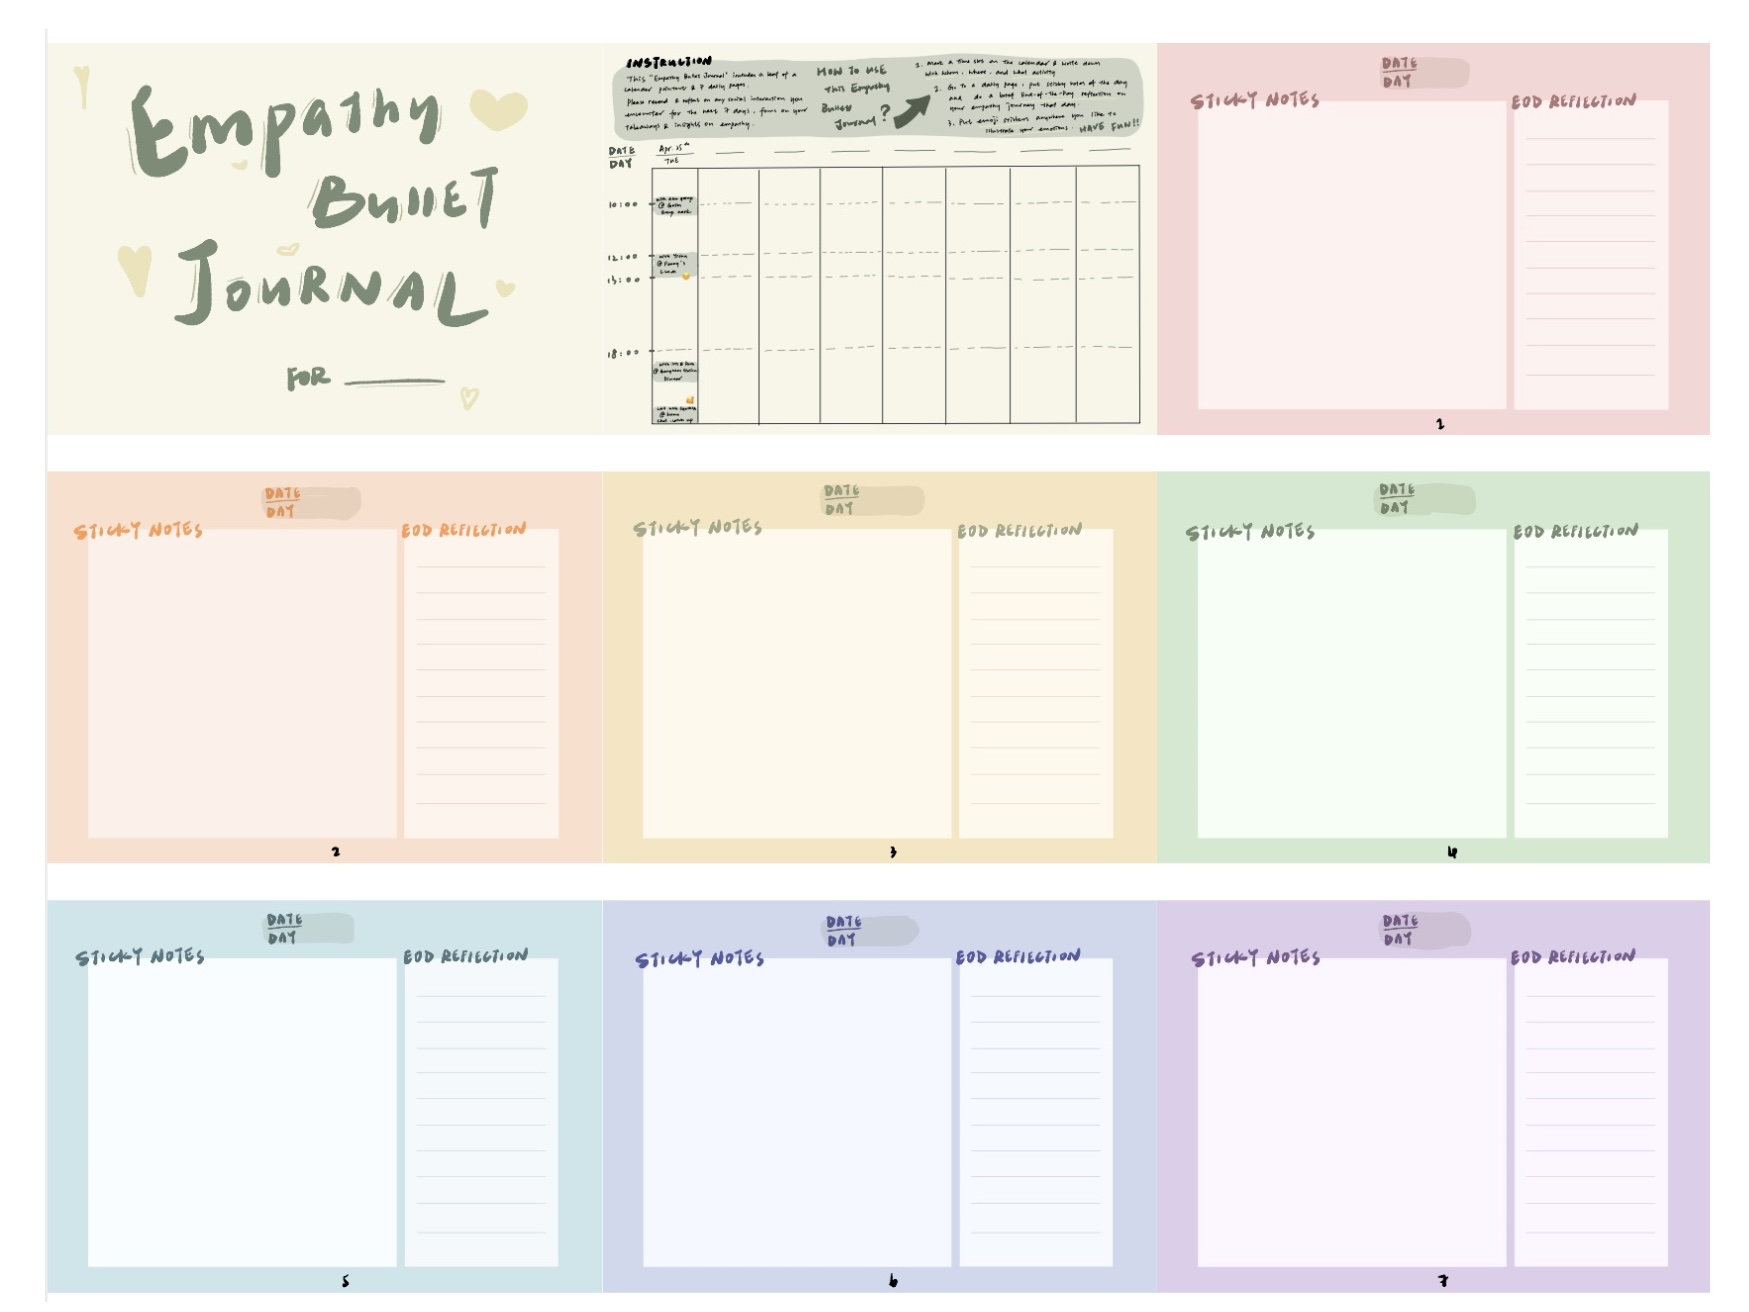 Empathy
BullET
JOURNAL
FOR
INSTRUCTION
This "Empathy Bullet Journal" includes a leaf of a
calendar journal & 7 daily pages.
Please record & reflect on any social interaction you
encounter for the next 7 days, focus on your
takeaways & insights on empathy.
HOW TO USE
This Empathy
Bullet
Journal?
1. Mark a time slot on the calendar & write down
with whom, where, and what activity
2. Go to a daily page, put sticky notes of the day
and do a brief End-of-the-Day reflection on
your empathy journey that day.
3. Put emoji stickers anywhere you like to
illustrate your emotions. HAVE FUN!!
DATE
DAY
Apr. 25th
TUE
10:00
12:00
18:00
DATE
DAY
STICKY NOTES
EOD REFLECTION
1
DATE
DAY
STICKY NOTES
EOD REFLECTION
2
DATE
DAY
STICKY NOTES
EOD REFLECTION
3
DATE
DAY
STICKY NOTES
EOD REFLECTION
4
DATE
DAY
STICKY NOTES
EOD REFLECTION
5
DATE
DAY
STICKY NOTES
EOD REFLECTION
6
DATE
DAY
STICKY NOTES
EOD REFLECTION
7